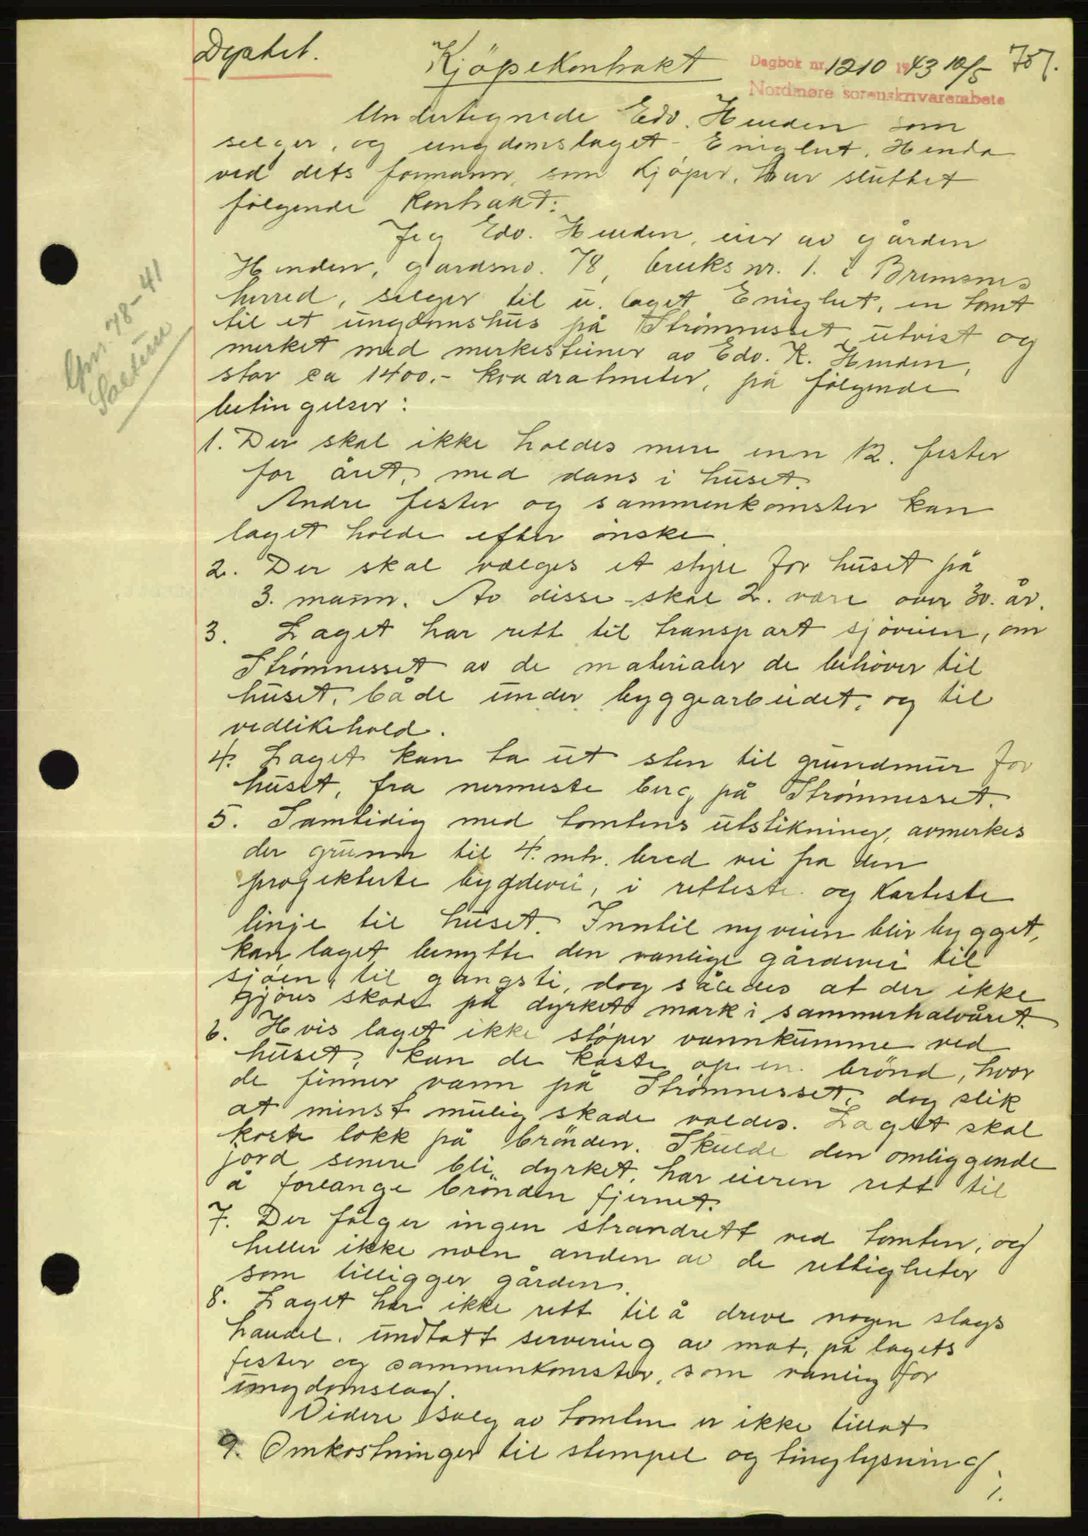 Dagbok nr. 1210 1943 10/5 757.
Nordmøre sorenskrivarembete
Kjöpekontrakt
Undertegnede Edv. Henden som
selger, og ungdomslaget Eniglut, Henda
ved dets formann, som kjöper, har sluttet
følgende kontrakt:
Jeg Edv. Henden, eier av gården
Henden, gardsno. 78, bruks nr. 1. i Bremsnes
herred, selger til u. laget Eniglut, en tomt
til et ungdomshus på Strömnesset utvist og
merket med merkesteiner av Edv. K. Henden,
stor ca 1400.- kvadratmeter, på følgende
betingelser:
Gnr. 78-41
1. Der skal ikke holdes mere enn 12. fester
for året, med dans i huset.
Andre fester og sammenkomster kan
laget holde efter ønske.
2. Der skal velges et styre for huset på
3. mann. Av disse skal 2. være over 30. år.
3. Laget har rett til transport sjöveien, om
Strömnesset av de materialer de behöver til
huset, både under byggearbeidet, og til
vedlikehold.
4. Laget kan ta ut sten til grundmur for
huset, fra nermeste berg, på Strömnesset.
5. Samtidig med tomtens utstikning, avmerkes
der grunn til 4. mtr. bred vei fra den
projekterte bygdevei, i retteste og korteste
linje til huset. Inntil nyveien blir bygget,
kan laget benytte den vanlige gårdsvei til
sjöen, til gangsti, dog således at der ikke
gjöres skade på dyrket mark i sommerhalvåret.
6. Hvis laget ikke stöper vannkumme ved
huset, kan de kaste op en brönd, hvor
de finner vann på Strömnesset, dog slik
at minst mulig skade voldes. Laget skal
koste lokk på brönden. Skulde den omliggende
jord senere bli dyrket, har eieren rett til
å forlange brönden fjernet.
7. Der følger ingen strandrett ved tomten, og
heller ikke noen anden av de rettigheter
som tilligger gården.
8. Laget har ikke rett til å dreve nogen slags
handel, undtatt servering av mat, på lagets
fester og sammenkomster, som vanlig for
ungdomslag.
Videre salg av tomten er ikke tillat
9. Omkostninger til stempel og tinglysning